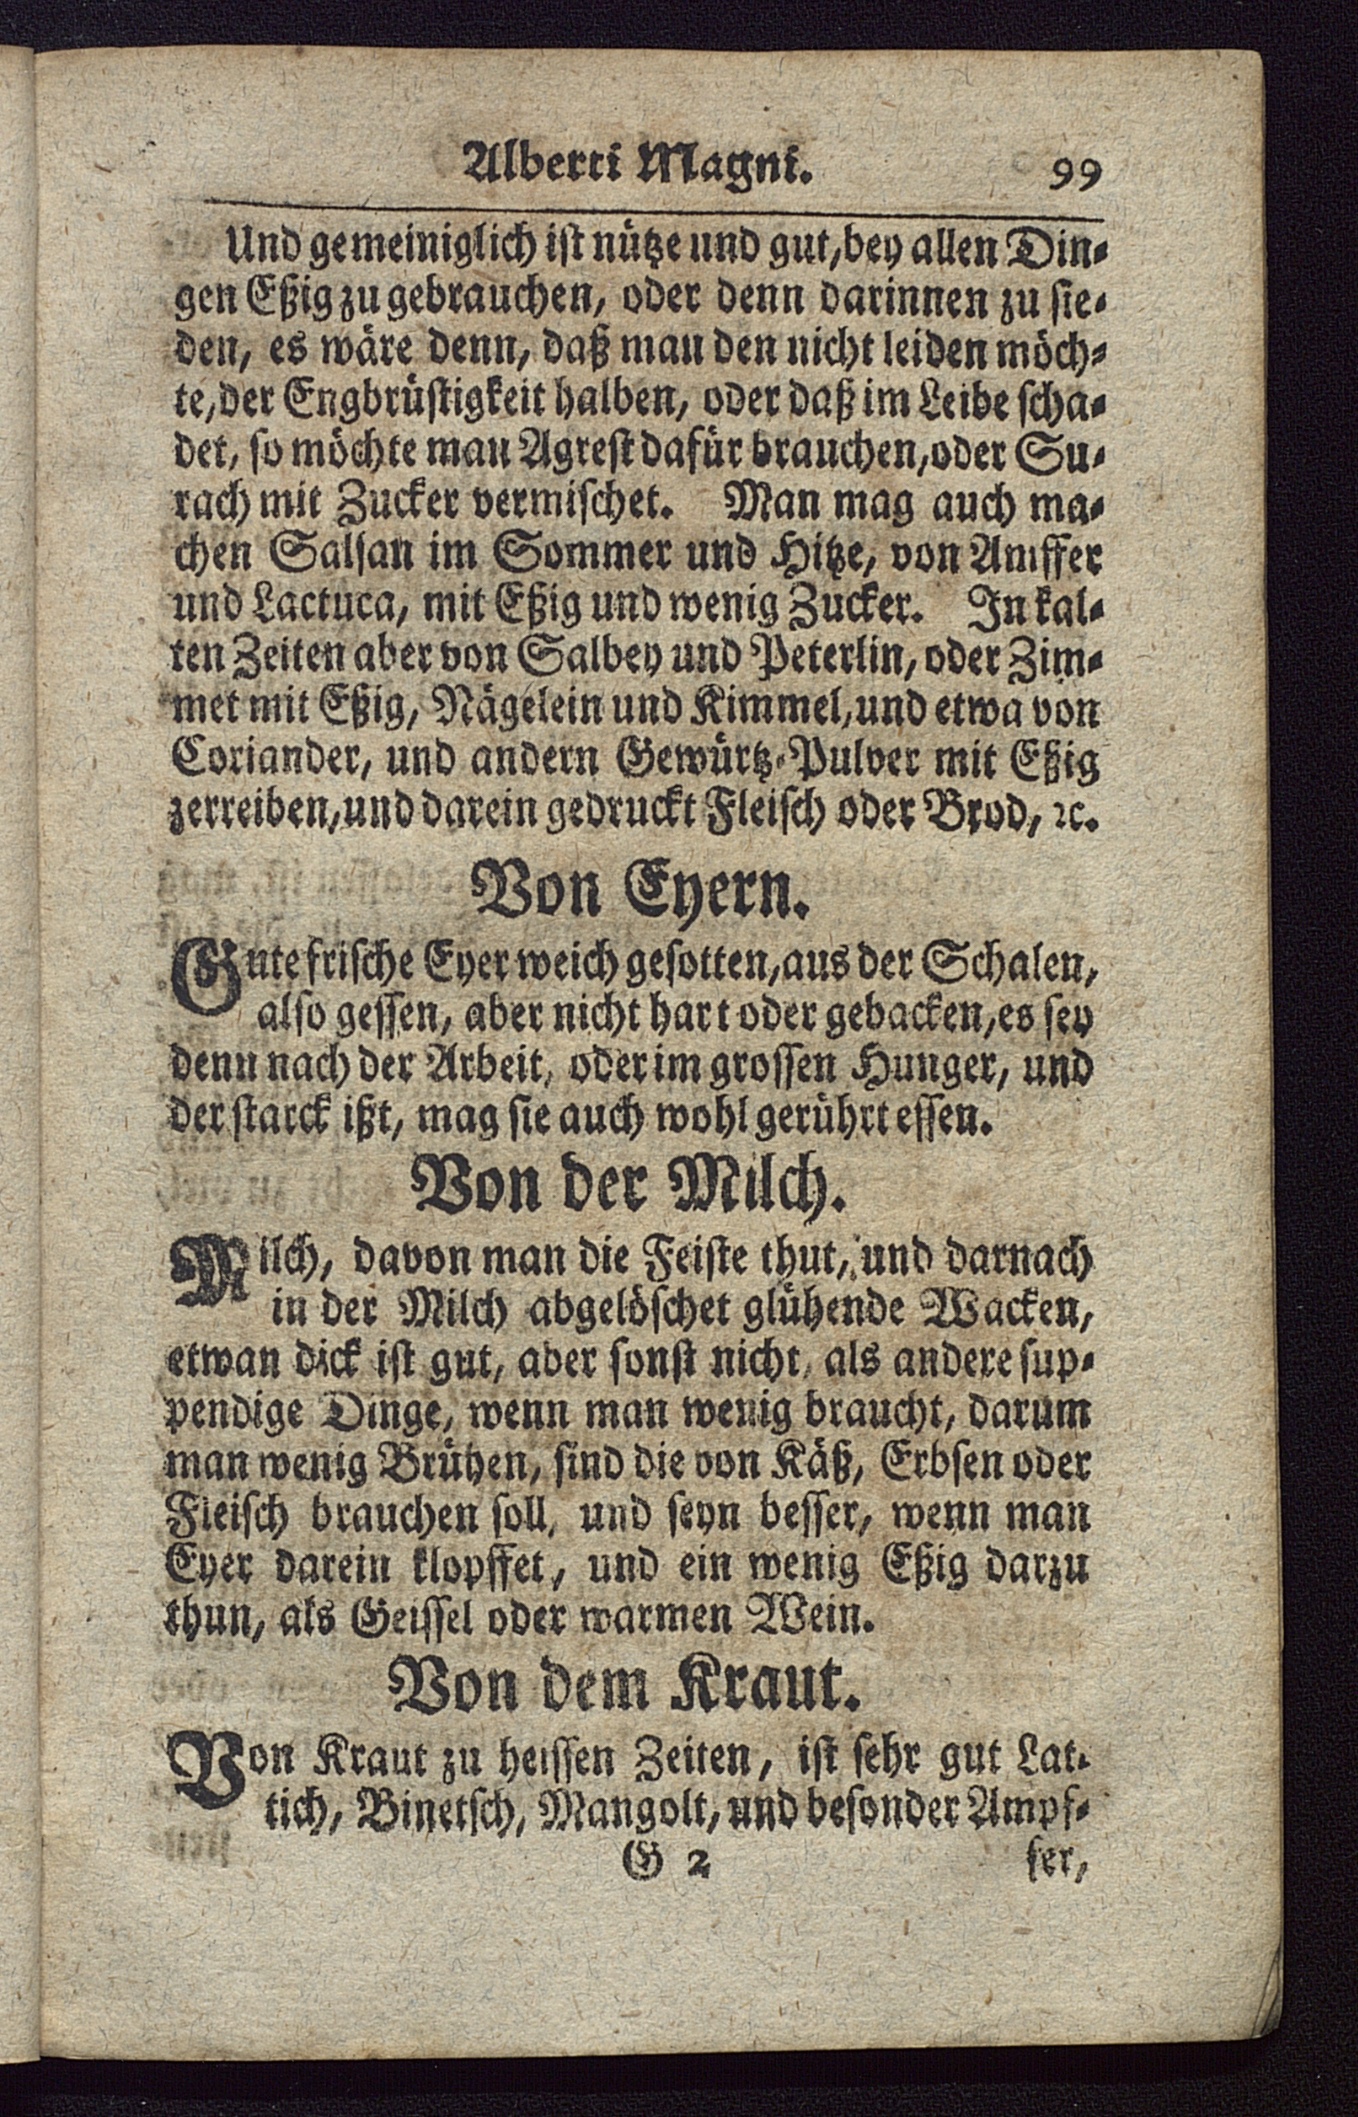 Alberti Magni. 99
Und gemeiniglich ist nütze und gut, bey allen Din-
gen Eßig zu gebrauchen, oder denn darinnen zu sie-
den, es wäre denn, daß man den nicht leiden möch-
te, der Engbrüstigkeit halben, oder daß im Leibe scha-
det, so möchte man Agrest dafür brauchen, oder Su-
rach mit Zucker vermischet. Man mag auch ma-
chen Salsan im Sommer und Hitze, von Amffer
und Lactuca, mit Eßig und wenig Zucker. In kal-
ten Zeiten aber von Salbey und Peterlin, oder Zim-
met mit Eßig, Nägelein und Kimmel, und etwa von
Coriander, und andern Gewürtz-Pulver mit Eßig
zerreiben, und darein gedruckt Fleisch oder Brod, ꝛc.
Von Eyern.
Gute frische Eyer weich gesotten, aus der Schalen,
also gessen, aber nicht hart oder gebacken, es sey
denn nach der Arbeit, oder im grossen Hunger, und
der starck ißt, mag sie auch wohl gerührt essen.
Von der Milch.
Milch, davon man die Feiste thut, und darnach
in der Milch abgelöschet glühende Wacken,
etwan dick ist gut, aber sonst nicht, als andere sup-
pendige Dinge, wenn man wenig braucht, darum
man wenig Brühen, sind die von Käß, Erbsen oder
Fleisch brauchen soll, und seyn besser, wenn man
Eyer darein klopffet, und ein wenig Eßig darzu
thun, als Geissel oder warmen Wein.
Von dem Kraut.
Von Kraut zu heissen Zeiten, ist sehr gut Lat-
tich, Binetsch, Mangolt, und besonder Ampf-
G 2 fer,